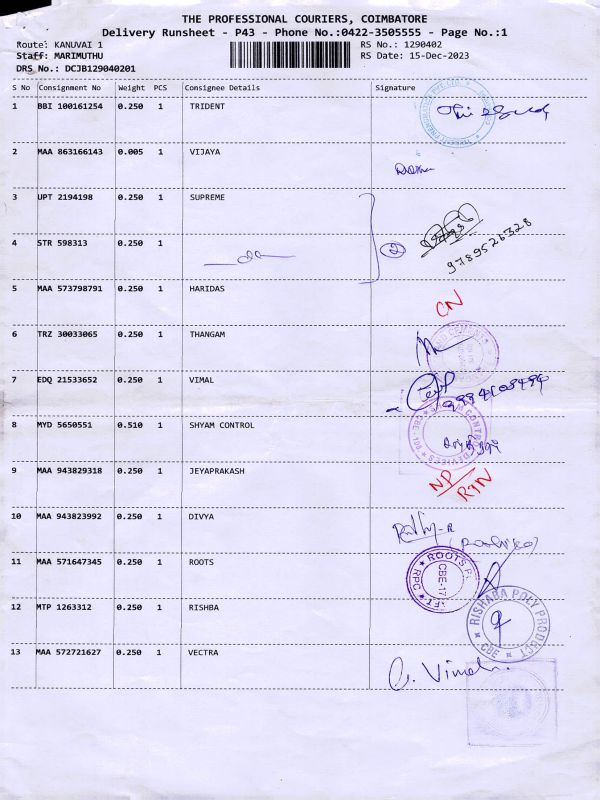 THE PROFESSIONAL COURIERS, COIMBATORE
Delivery Runsheet - P43 - Phone No.:0422-3505555 - Page No.:1
Route: KANUVAI 1 RS No.: 1290402
Staff: MARIMUTHU RS Date: 15-Dec-2023
DRS No.: DCJB129040201
S No Consignment No Weight PCS Consignee Details Signature
1 BBI 100161254 0.250 1 TRIDENT
2 MAA 863166143 0.005 1 VIJAYA
3 UPT 2194198 0.250 1 SUPREME
4 STR 598313 0.250 1 2
9789526328
5 MAA 573798791 0.250 1 HARIDAS CN
6 TRZ 30033065 0.250 1 THANGAM
7 EDQ 21533652 0.250 1 VIMAL
8 MYD 5650551 0.510 1 SHYAM CONTROL
9 MAA 943829318 0.250 1 JEYAPRAKASH NP/RTN
10 MAA 943823992 0.250 1 DIVYA
11 MAA 571647345 0.250 1 ROOTS ROOTS CBE-17 RPC
12 MTP 1263312 0.250 1 RISHBA RISHABA POLY PRODUCT CBE
13 MAA 572721627 0.250 1 VECTRA